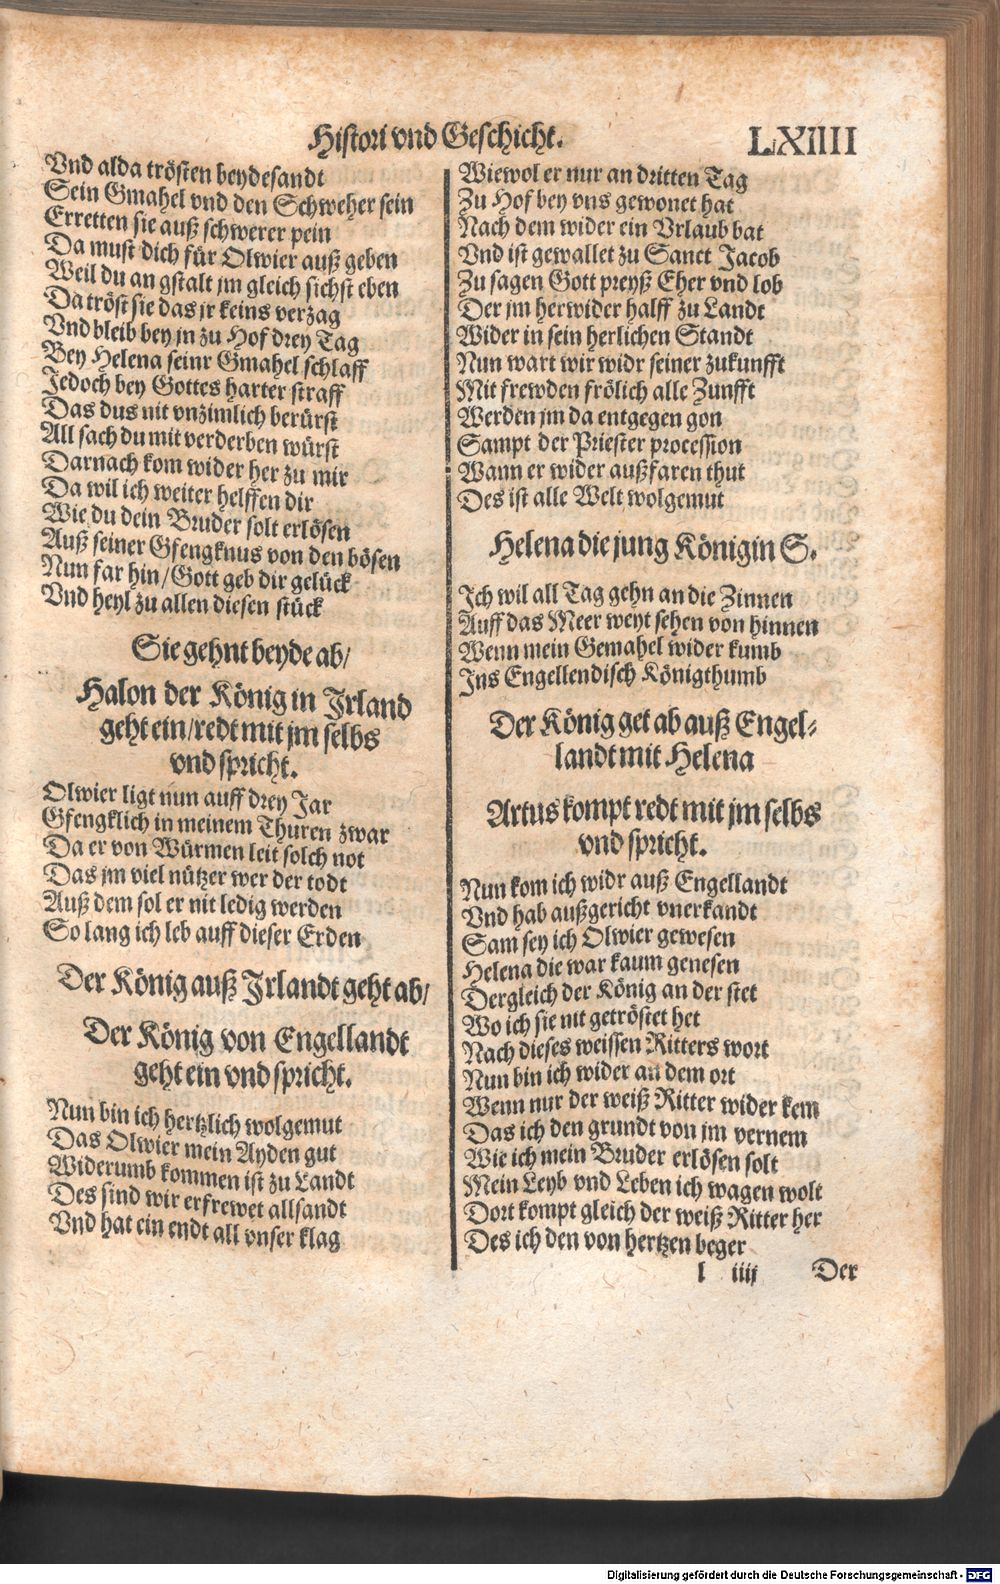 Histori vnd Geschicht. LXIIII
Vnd alda trösten beydesandt
Sein Gmahel vnd den Schweher sein
Erretten sie auß schwerer pein
Da must dich für Olwier auß geben
Weil du an gstalt jm gleich sichst eben
Da tröst sie das jr keins verzag
Vnd bleib bey jn zu Hof drey Tag
Bey Helena seinr Gmahel schlaff
Jedoch bey Gottes harter straff
Das dus nit vnzimlich berürst
All sach du mit verderben würst
Darnach kom wider her zu mir
Da wil ich weiter helffen dir
Wie du dein Bruder solt erlösen
Auß seiner Gfengknus von den bösen
Nun far hin/Gott geb dir gelück
Vnd heyl zu allen diesen stück
Sie gehnt beyde ab/
Halon der König in Jrland
geht ein/redt mit jm selbs
vnd spricht.
Olwier ligt nun auff drey Jar
Gfengklich in meinem Thuren zwar
Da er von Würmen leit solch not
Das jm viel nützer wer der todt
Auß dem sol er nit ledig werden
So lang ich leb auff dieser Erden
Der König auß Jrlandt geht ab/
Der König von Engellandt
geht ein vnd spricht.
Nun bin ich hertzlich wolgemut
Das Olwier mein Ayden gut
Widerumb kommen ist zu Landt
Des sind wir erfrewet allsandt
Vnd hat ein endt all vnser klag
Wiewol er nur an dritten Tag
Zu Hof bey vns gewonet hat
Nach dem wider ein Vrlaub bat
Vnd ist gewallet zu Sanct Jacob
Zu sagen Gott preyß Eher vnd lob
Der jm herwider halff zu Landt
Wider in sein herlichen Standt
Nun wart wir widr seiner zukunfft
Mit frewden frölich alle Zunfft
Werden jm da entgegen gon
Sampt der Priester procession
Wann er wider außfaren thut
Des ist alle Welt wolgemut
Helena die jung Königin S.
Ich wil all Tag gehn an die Zinnen
Auff das Meer weyt sehen von hinnen
Wenn mein Gemahel wider kumb
Ins Engellendisch Königthumb
Der König get ab auß Engel⸗
landt mit Helena
Artus kompt redt mit jm selbs
vnd spricht.
Nun kom ich widr auß Engellandt
Vnd hab außgericht vnerkandt
Sam sey ich Olwier gewesen
Helena die war kaum genesen
Dergleich der König an der stet
Wo ich sie nit getröstet het
Nach dieses weissen Ritters wort
Nun bin ich wider an dem ort
Wenn nur der weiß Ritter wider kem
Das ich den grundt von jm vernem
Wie ich mein Bruder erlösen solt
Mein Leyb vnd Leben ich wagen wolt
Dort kompt gleich der weiß Ritter her
Des ich den von hertzen beger
l iiij Der
Digitalisierung gefördert durch die Deutsche Forschungsgemeinschaft - DFG